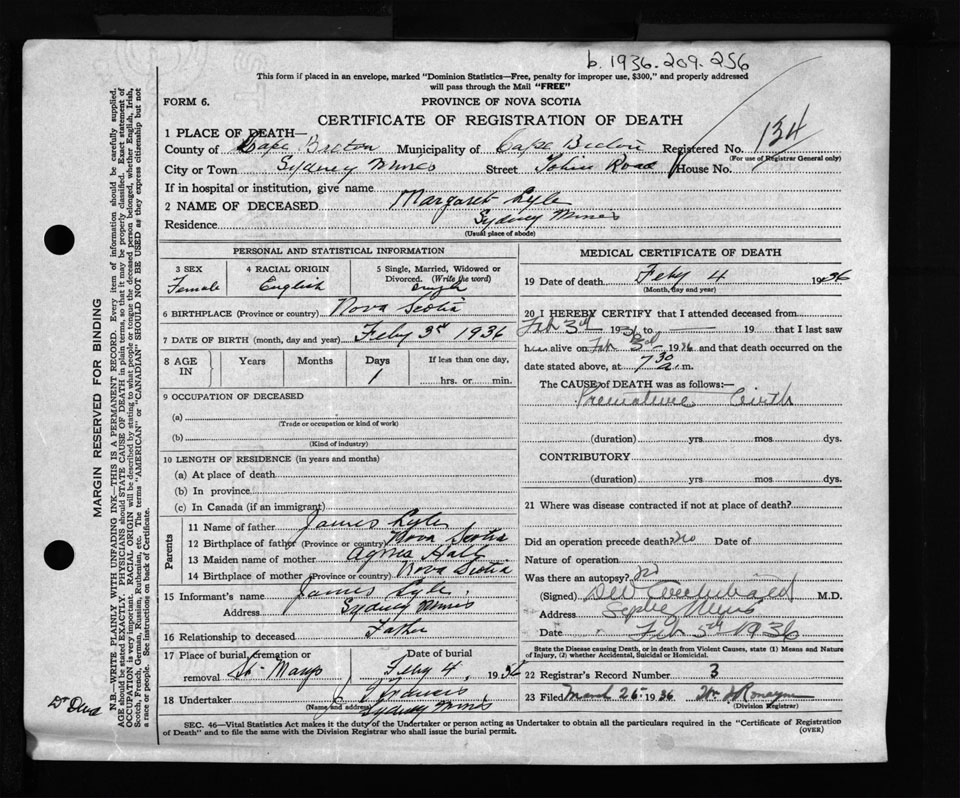 b. 1936. 209. 256
This form if placed in an envelope, marked "Dominion Statistics—Free, penalty for improper use, $300," and properly addressed
will pass through the Mail "FREE"
FORM 6.
PROVINCE OF NOVA SCOTIA
CERTIFICATE OF REGISTRATION OF DEATH
1 PLACE OF DEATH—
County of Cape Breton Municipality of Cape Breton Registered No. 134
(For use of Registrar General only)
City or Town Sydney Mines Street Road House No.
If in hospital or institution, give name
2 NAME OF DECEASED Margaret Lyle
Residence Sydney Mines
(Usual place of abode)
PERSONAL AND STATISTICAL INFORMATION
3 SEX Female
4 RACIAL ORIGIN English
5 Single, Married, Widowed or Divorced. (Write the word) Single
6 BIRTHPLACE (Province or country) Nova Scotia
7 DATE OF BIRTH (month, day and year) Feby 3rd 1936
8 AGE IN Years Months Days 1 If less than one day, hrs. or min.
9 OCCUPATION OF DECEASED
(a)
(Trade or occupation or kind of work)
(b)
(Kind of industry)
10 LENGTH OF RESIDENCE (in years and months)
(a) At place of death
(b) In province
(c) In Canada (if an immigrant)
Parents
11 Name of father James Lyle
12 Birthplace of father (Province or country) Nova Scotia
13 Maiden name of mother Agnes Hall
14 Birthplace of mother (Province or country) Nova Scotia
15 Informant's name James Lyle
Address Sydney Mines
16 Relationship to deceased Father
17 Place of burial, cremation or removal St. Marys Date of burial Feby 4, 1936
18 Undertaker
(Name and address) Sydney Mines
MEDICAL CERTIFICATE OF DEATH
19 Date of death Feby 4 1936
(Month, day and year)
20 I HEREBY CERTIFY that I attended deceased from
Feb 3rd 1936 to — 19 that I last saw
her alive on Feb 3rd 1936 and that death occurred on the
date stated above, at 7 30 a. m.
The CAUSE of DEATH was as follows:—
Premature Birth
(duration) yrs mos dys.
CONTRIBUTORY
(duration) yrs. mos. dys.
21 Where was disease contracted if not at place of death?
Did an operation precede death? No Date of
Nature of operation
Was there an autopsy? No
(Signed) Archibald M.D.
Address Sydney Mines
Date Feb 5th 1936
State the Disease causing Death, or in death from Violent Causes, state (1) Means and Nature of Injury, (2) whether Accidental, Suicidal or Homicidal.
22 Registrar's Record Number 3
23 Filed March 26 1936
(Division Registrar)
SEC. 46—Vital Statistics Act makes it the duty of the Undertaker or person acting as Undertaker to obtain all the particulars required in the "Certificate of Registration
of Death" and to file the same with the Division Registrar who shall issue the burial permit.
(OVER)
MARGIN RESERVED FOR BINDING
N.B.—WRITE PLAINLY WITH UNFADING INK—THIS IS A PERMANENT RECORD. Every item of information should be carefully supplied.
AGE should be stated EXACTLY. PHYSICIANS should STATE CAUSE OF DEATH in plain terms, so that it may be properly classified. Exact statement of
OCCUPATION is very important. RACIAL ORIGIN will be described by stating to what people or tongue the deceased person belonged, whether English, Irish,
Scotch, French, German, Russian, Ruthenian, etc. The terms "AMERICAN" or "CANADIAN" SHOULD NOT BE USED as they express citizenship but not
a race or people. See instructions on back of Certificate.